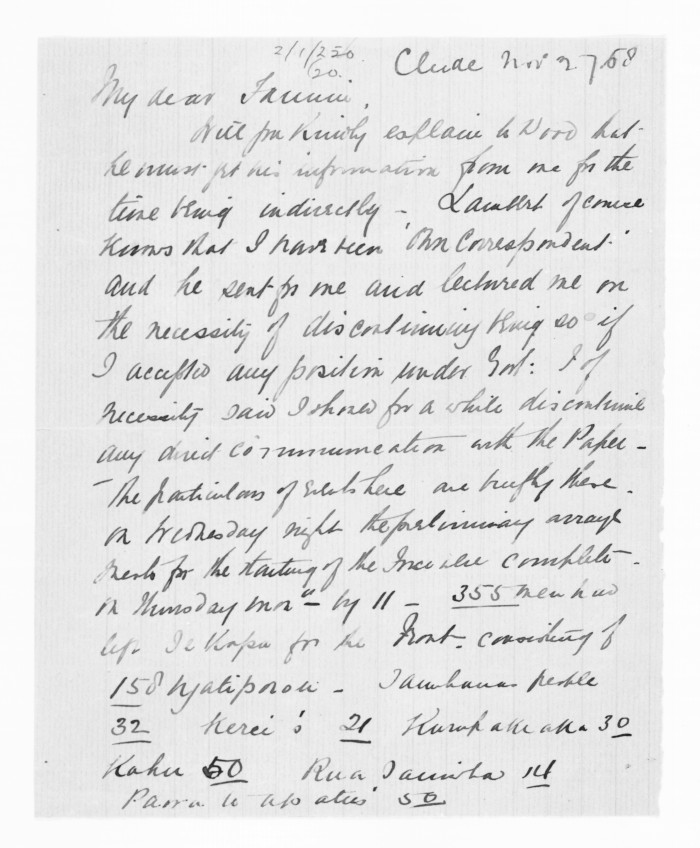 2/1/250
/20.
Clyde Nov 27/68
My dear
Will you Kindly explain to Wood that
he must get his information from me for the
time being indirectly - Lambert of course
Knows that I have been 'Own Correspondent'
and he sent for me and lectured me on
the necessity of discontinuing being so if
I accepted any position under Govt: I of
necessity said I should for a while discontinue
any direct communication with the Paper -
The particulars of events here are briefly these.
on Wednesday night the preliminary arrange
ments for the starting of the were complete -
on Thursday morng - by 11 - 355 men had
left Te Kapu for the Front - consisting of
158 Ngatiporou - people
32 21 30
Kahu 50 Rua 14
50